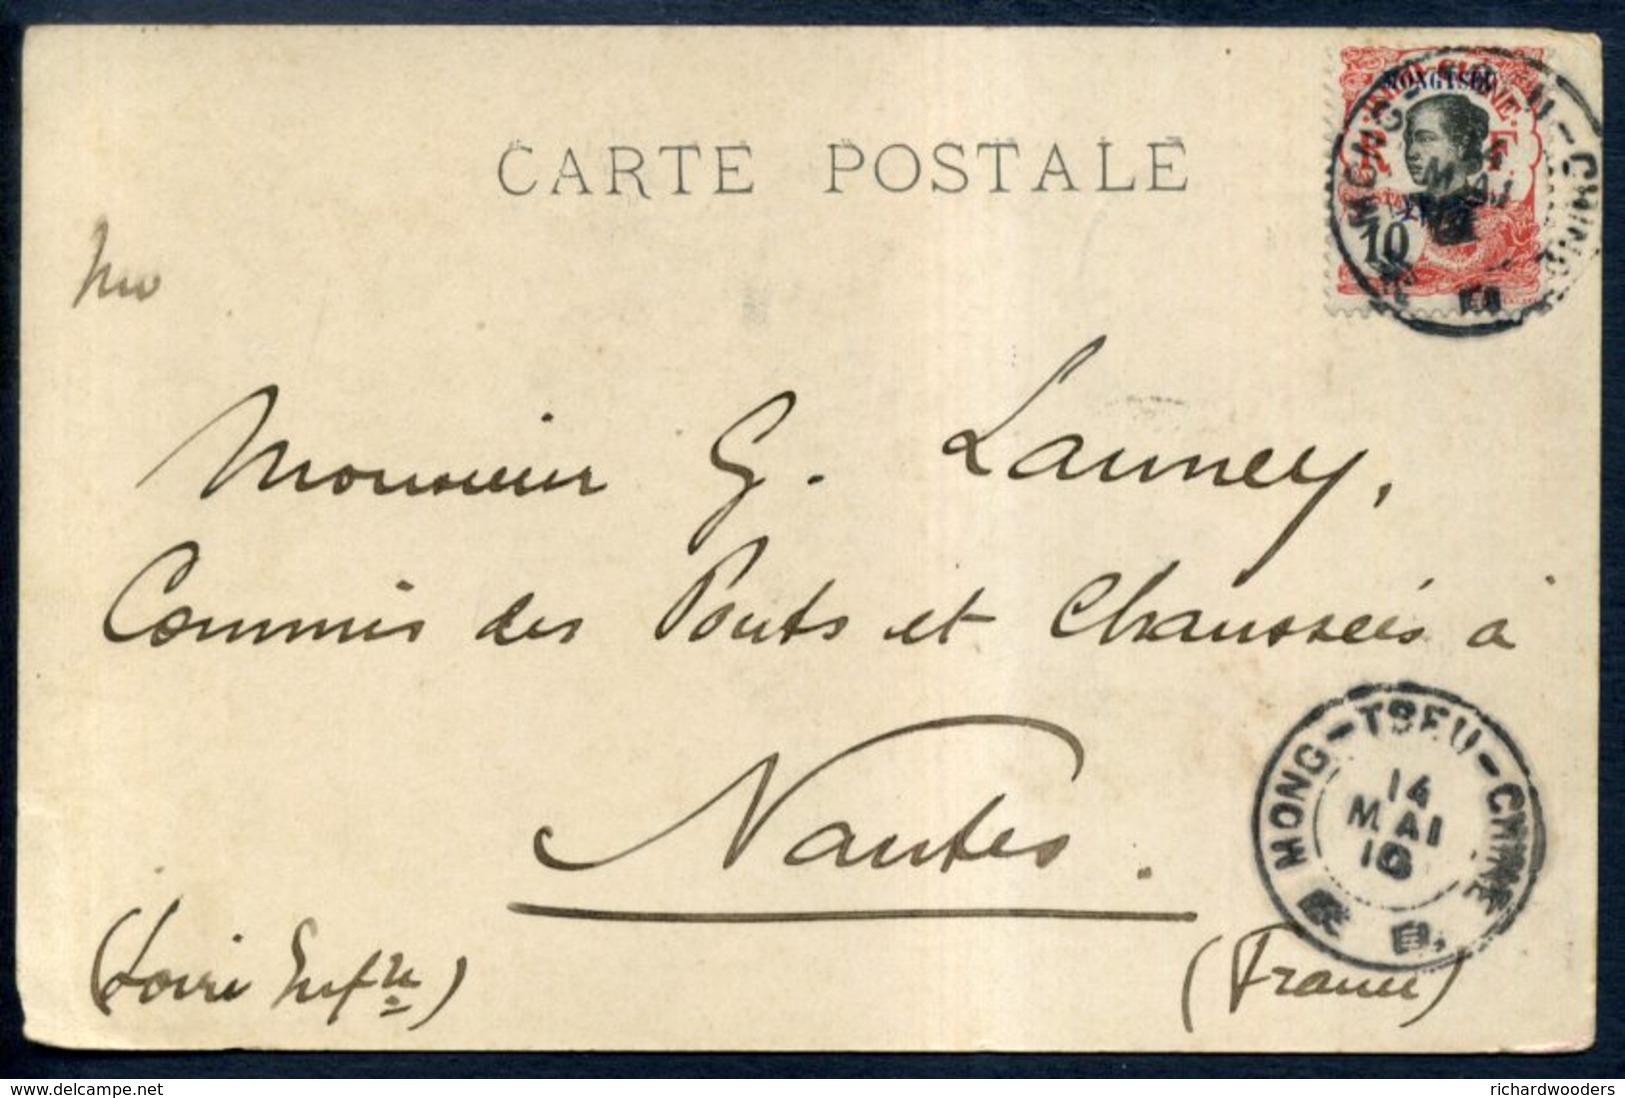 CARTE POSTALE
MONGTSEU
10
MONG-TSEU-CHINE
14
MAI
Monsieur G. Launey,
Commis des Ponts et Chaussées à
Nantes.
(Loire Infre)
(France)
MONG-TSEU-CHINE
14
MAI
10
delcampe.net
richardwooders